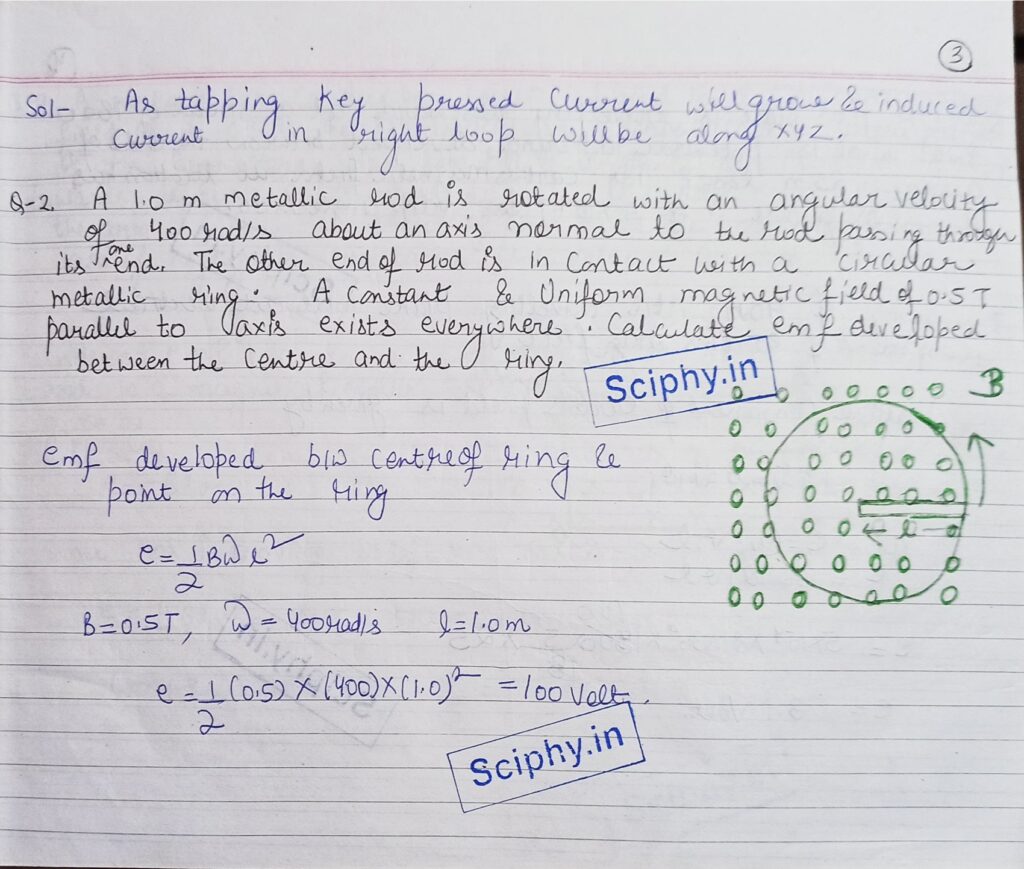 3
Sol- As tapping key pressed current will grow & induced
current in right loop will be along xyz.
Q-2. A 1.0 m metallic rod is rotated with an angular velocity
of 400 rad/s about an axis normal to the rod passing through
its one end. The other end of rod is in contact with a circular
metallic ring. A constant & Uniform magnetic field of 0.5 T
parallel to axis exists everywhere. Calculate emf developed
between the centre and the ring.
Sciphy.in
B
emf developed b/w centre of ring &
point on the ring
l
e = 1/2 Bωl²
B = 0.5T, ω = 400 rad/s l = 1.0 m
e = 1/2 (0.5) × (400) × (1.0)² = 100 Volt.
Sciphy.in